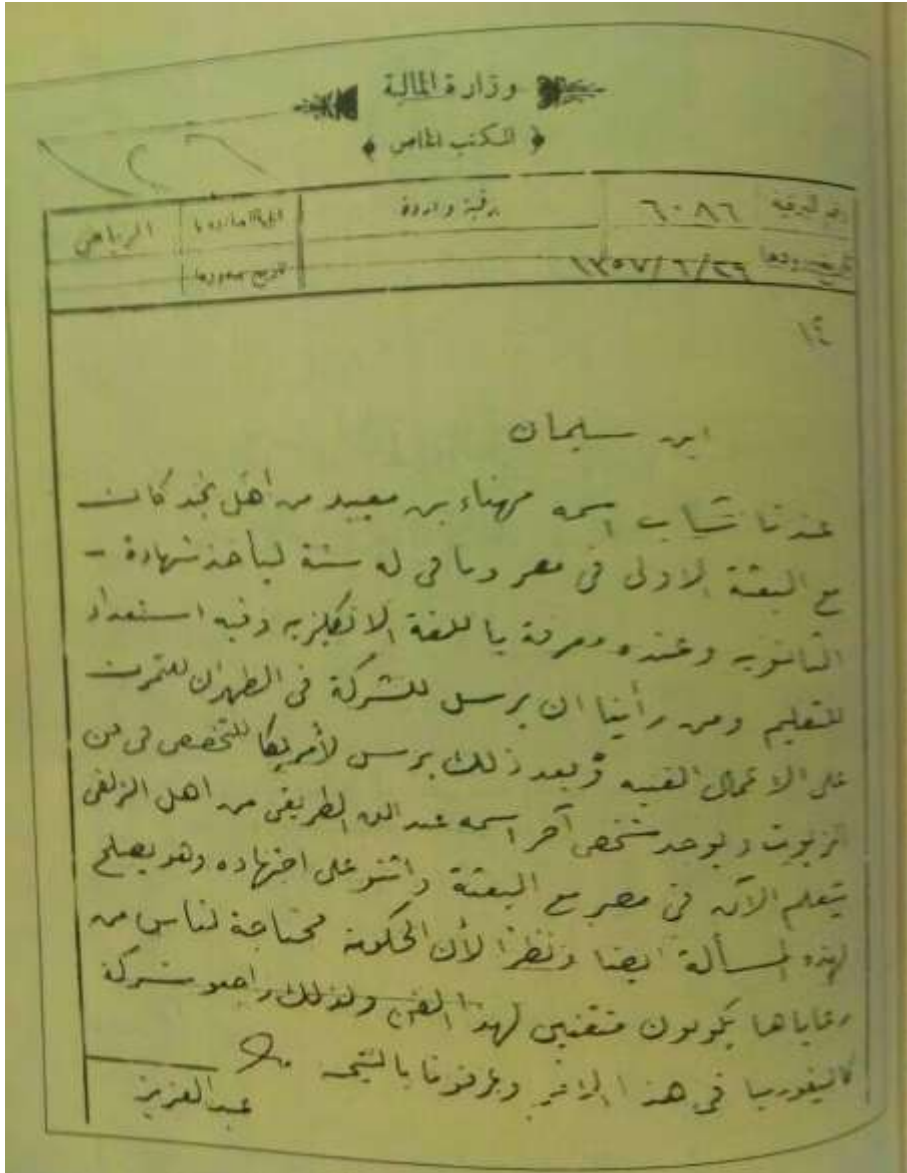 وزارة المالية
المكتب الخاص
رقم البرقية ٦٠٨٦ برقية واردة الجهة الصادرة الرياض
تاريخ ورودها ١٣٥٧/٦/٢٩ تاريخ صدورها
ابن سليمان
عندنا شاب اسمه مهناء بن معيبد من اهل نجد كان
مع البعثة الاولى في مصر وباقي له سنة ليأخذ شهادة -
الثانويه وعنده معرفة باللغة الانكليزيه وفيه استعداد
للتعليم ومن رأينا ان يرسل للشركة في الظهران للتمرن
على الاعمال الفنيه وبعد ذلك يرسل لأمريكا للتخصص في فن
الزيوت ويوجد شخص آخر اسمه عبد الله الطريقي من اهل الزلفى
يتعلم الآن في مصر مع البعثة واثنو على اجتهاده وهو يصلح
لهذه المسألة ايضا ونظرا لأن الحكومة محتاجة لناس من
رعاياها يكونون متقنين لهذا الفن ولذلك راجعو شركة
كاليفورنيا في هذا الامر وعرفونا بالنتيجه
عبد العزيز